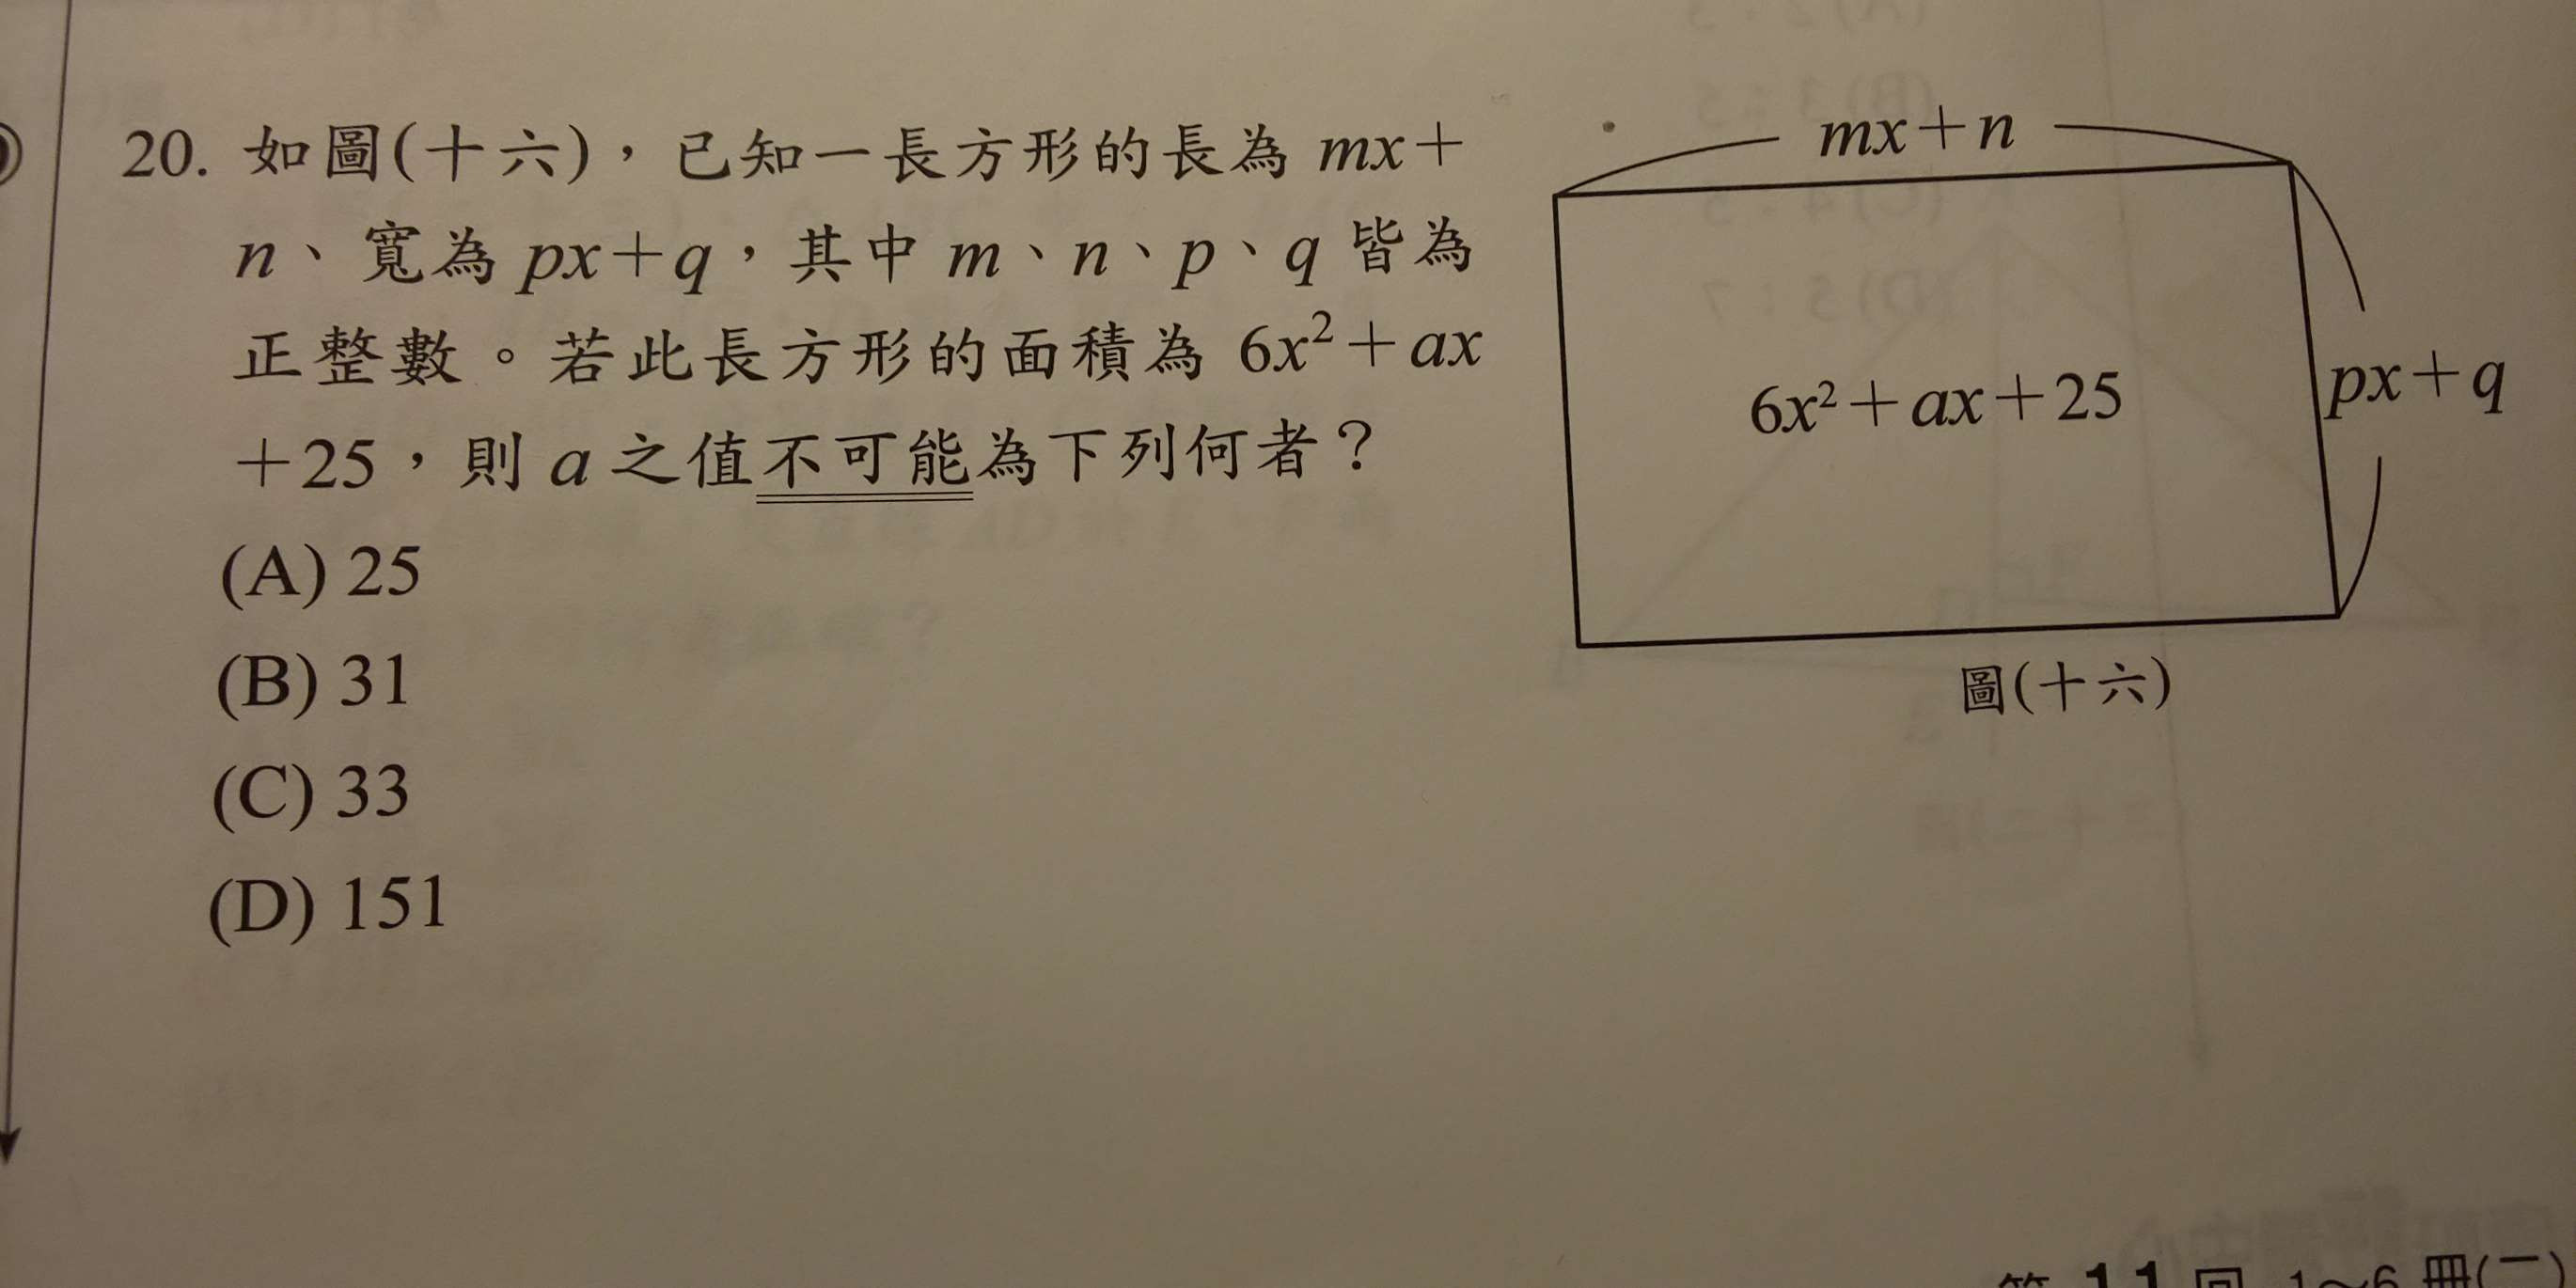 20. 如圖(十六)，已知一長方形的長為 mx+
n、寬為 px+q，其中 m、n、p、q 皆為
正整數。若此長方形的面積為 6x²+ax
+25，則 a 之值不可能為下列何者？
(A) 25
(B) 31
(C) 33
(D) 151
mx+n
6x²+ax+25
px+q
圖(十六)
第 11 回 1～6 冊(二)